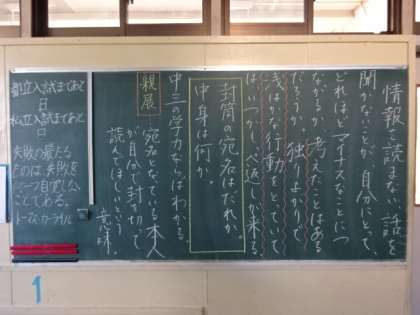 情報を読まない、話を
聞かないことが、自分にとって、
どれほどマイナスなことにつ
ながるか、考えたことはある
だろうか。独りよがりで
浅はかな行動をとっていて
は、いつかしっぺ返しが来る。
封筒の宛名はだれか。
中身は何か。
中三の学力ならばわかる。
親展
宛名となっている本人
が自分で封を切って、
読んでほしいという
意味。
都立入試まであと
日
私立入試まであと
日
失敗の最たる
ものは、失敗を
一つも自覚しない
ことである。
トーマス・カーライル
1